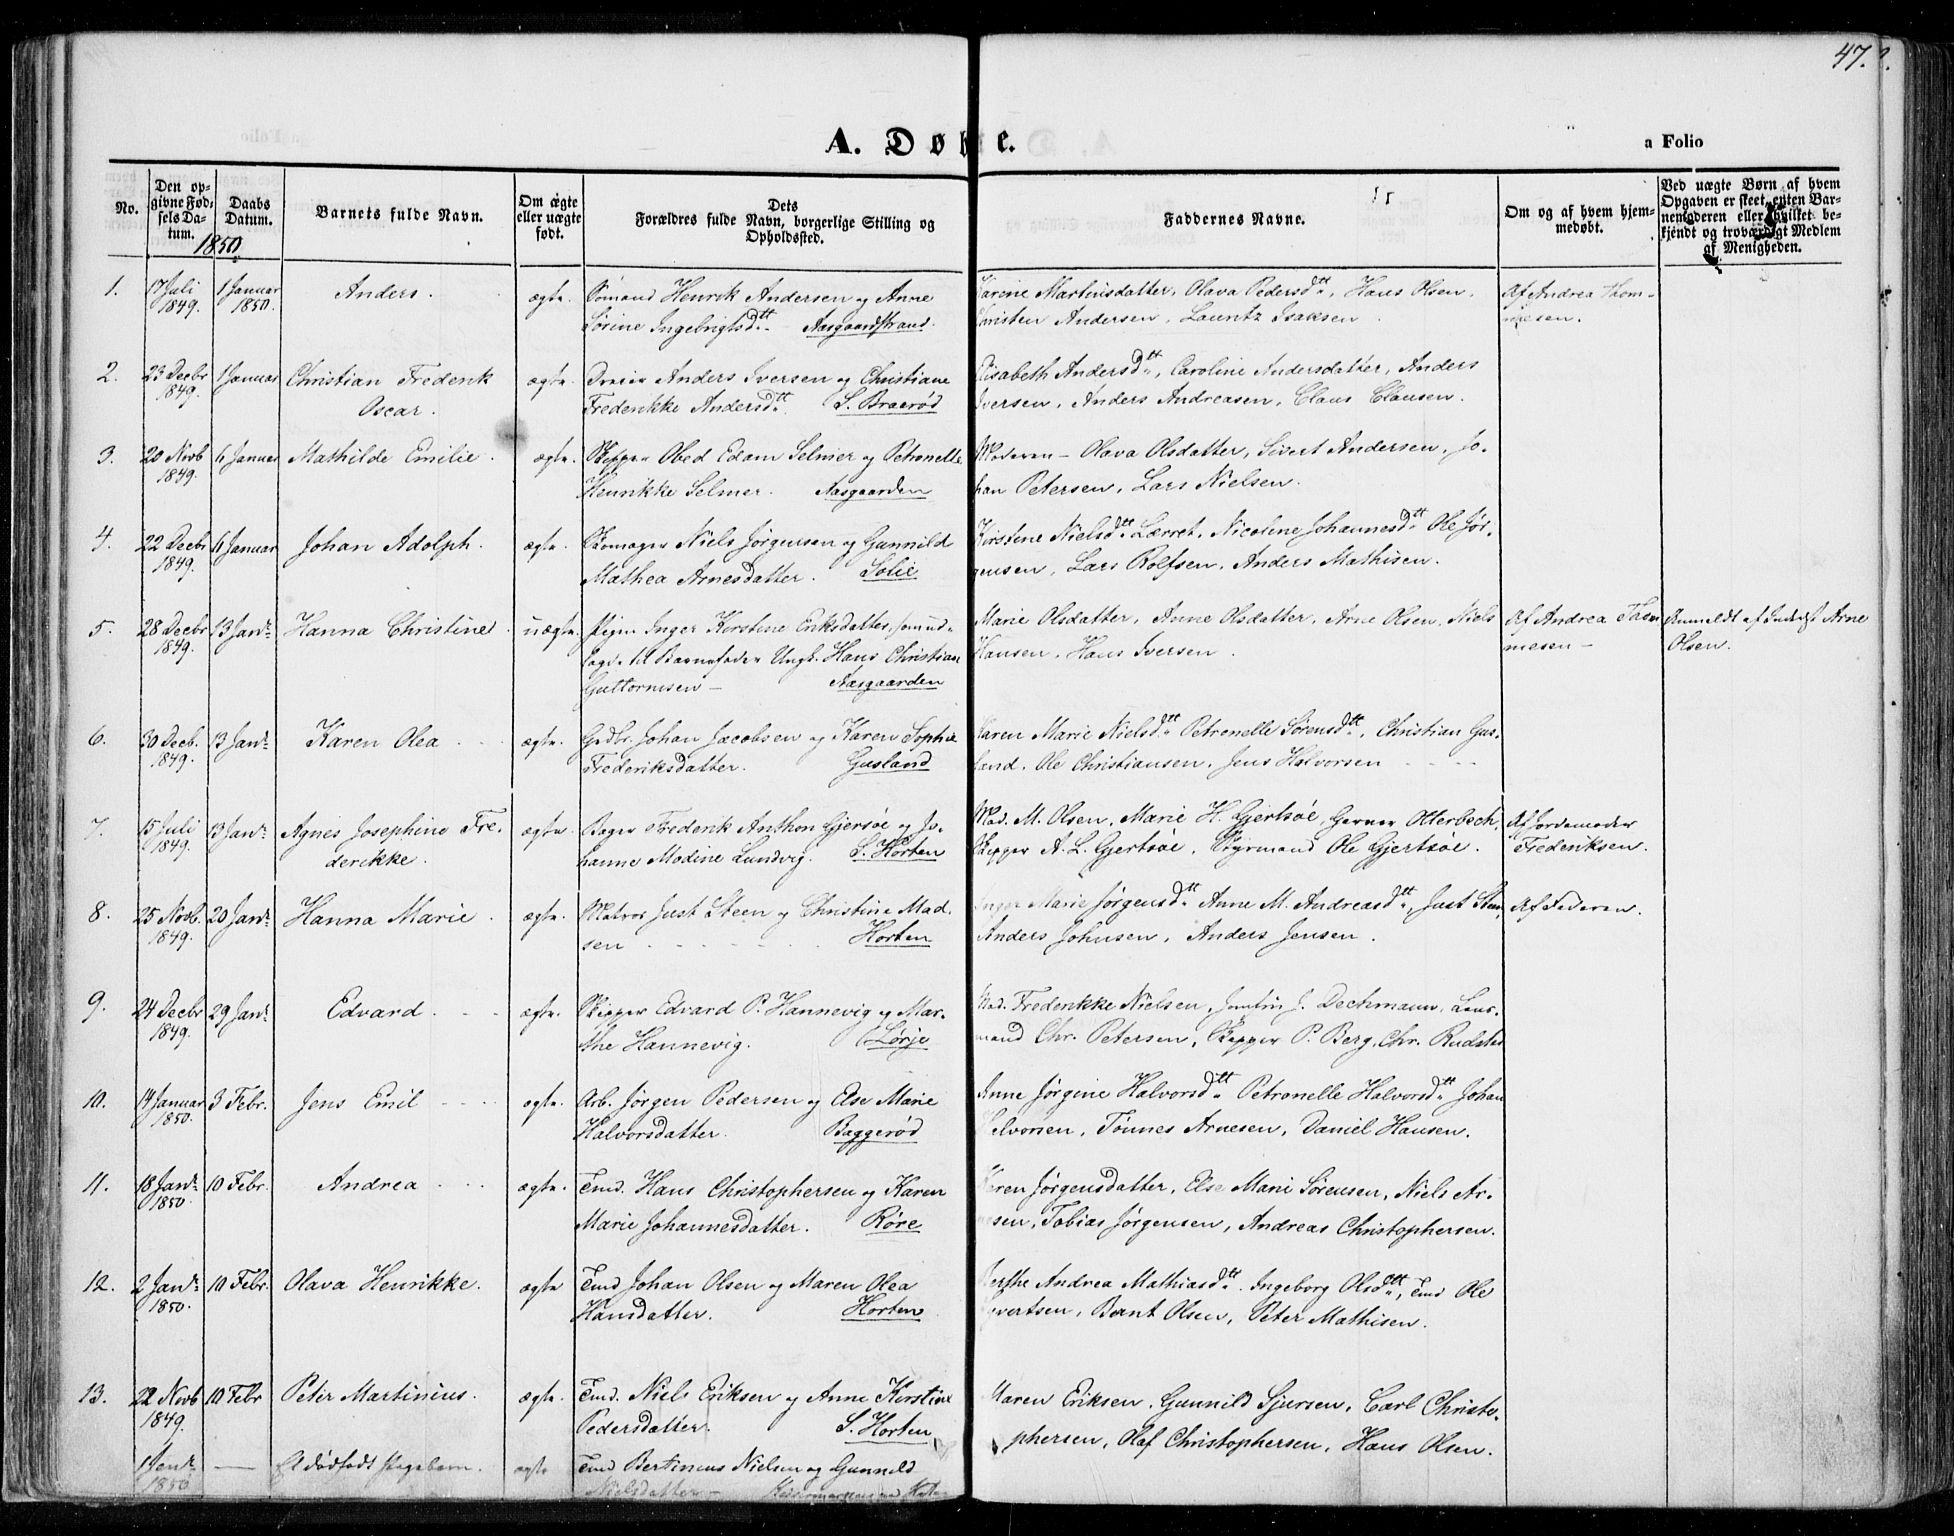 47.
A. Døbte.
a Folio
No.
Den op-
givne Fød-
sels Da-
tum.
Daabs
Datum.
Barnets fulde Navn.
Om ægte
eller uægte
født.
Dets
Forældres fulde Navn, borgerlige Stilling og
Opholdssted.
Faddernes Navne.
Om og af hvem hjem-
medøbt.
Ved uægte Børn af hvem
Opgaven er skeet, enten Bar-
nemoderen eller hvilket be-
kjendt og troværdigt Medlem
af Menigheden.
1850
1. 17 Juli 1 Januar Anders. ægte. Sømand Henrik Andersen og Anne Karine Martinsdatter, Olava Pedersdtt, Hans Olsen, Af Andrea Thom-
1849. 1850. Sørine Ingebrigtsdtt. Aasgaardstrand. Christen Andersen, Lauritz Isaksen. mesen.
2. 23 Decbr 1 Januar Christian Frederik ægte. Anders Iversen og Christiane Elisabeth Andersdtt, Caroline Andersdatter, Anders
1849. Oscar. Frederikke Andersdtt. S. Braarød Iversen, Anders Andreasen, Claus Clausen.
3. 20 Novb 6 Januar Mathilde Emilie. ægte. Skipper Obed Edam Selmer og Petronelle Moderen – Olava Olsdatter, Sivert Andersen, Jo-
1849. Henrikke Selmer. Aasgaarden han Petersen, Lars Nielsen.
4. 22 Decbr 6 Januar Johan Adolph. ægte. Skomager Niels Jørgensen og Gunnild Kirstene Nielsdtt Lærret, Nicoline Johannesdtt Ole Jør-
1849. Mathea Arnesdatter. Solie gensen, Lars Rolfsen, Anders Mathisen.
5. 28 Decbr 13 Janr. Hanna Christine. uægte. Pigen Inger Kirstine Eriksdatter, som ud- Marie Olsdatter, Anne Olsdatter, Arne Olsen, Niels Af Andrea Anmeldt af Arne
1849. lagde til Barnefader Ungk. Hans Christian Hansen, Hans Iversen. mesen – Olsen.
Guttormsen – Aasgaarden
6. 30 Decb. 13 Janr. Karen Olea ægte. Grdbr. Johan Jacobsen og Karen Sophie Karen Marie Nielsdtt Petronelle Sørensdtt, Christian Gus-
1849. Frederiksdatter. Gusland land, Ole Christiansen, Jens Halvorsen
7. 15 Juli 13 Janr. Agnes Josephine Fre- ægte. Bager Frederik Anthon Gjersøe og Jo- Mad. M. Olsen, Marie H. Gjertsøe, Garver Otterbech, Af Jordemoder
1849. derikke. hanne Modine Lundvig. S. Horten Skipper A. L. Gjertsøe, Styrmand Ole Gjertsøe. Frederiksen.
8. 25 Novb. 20 Janr. Hanna Marie. ægte. Matros Just Steen og Christine Mad- Inger Marie Jørgensdtt Anne M. Andreasdtt, Just Steen, Af Faderen.
1849. sen Horten Anders Johnsen, Anders Jensen.
9. 24 Decbr 29 Janr. Edvard ægte. Skipper Edvard P. Hannevig og Mar- Mad. Frederikke Nielsen, Jomfru J. Dechmann, Lens-
1849. the Hannevig. Lørje mand Chr. Petersen, Skipper P. Berg, Chr. Rudsted
10. 14 Januar 3 Febr. Jens Emil ægte. Arb. Jørgen Pedersen og Else Marie Anne Jørgine Halvorsdtt Petronelle Halvorsdtt Johan
1850. Halvorsdatter. Baggerød Halvorsen, Tønnes Arnesen, Daniel Hansen.
11. 18 Janr. 10 Febr. Andrea ægte. Tmd. Hans Christophersen og Karen Karen Jørgensdatter, Else Marie Sørensen, Niels Ar-
1850. Marie Johannesdatter. Røre nesen, Tobias Jørgensen, Andreas Christophersen.
12. 2 Janr. 10 Febr. Olava Henrikke. ægte Tmd Johan Olsen og Maren Olea Berthe Andrea Mathiasdtt. Ingeborg Olsdtt, Tmd Ole
1850. Hansdatter. Horten Syvertsen, Bernt Olsen, Peter Mathisen.
13. 22 Novb 10 Febr Peter Martinius. ægte. Tmd. Niels Eriksen og Anne Kirstine Maren Eriksen, Gunnild Sjursen, Carl Christo-
1849. Pedersdatter. S. Horten phersen, Olaf Christophersen, Hans Olsen.
1 Janr. — Et dødfødt Pigebarn. ægte Tmd Bertinius Nielsen og Gunnild
1850 Nielsdatter –